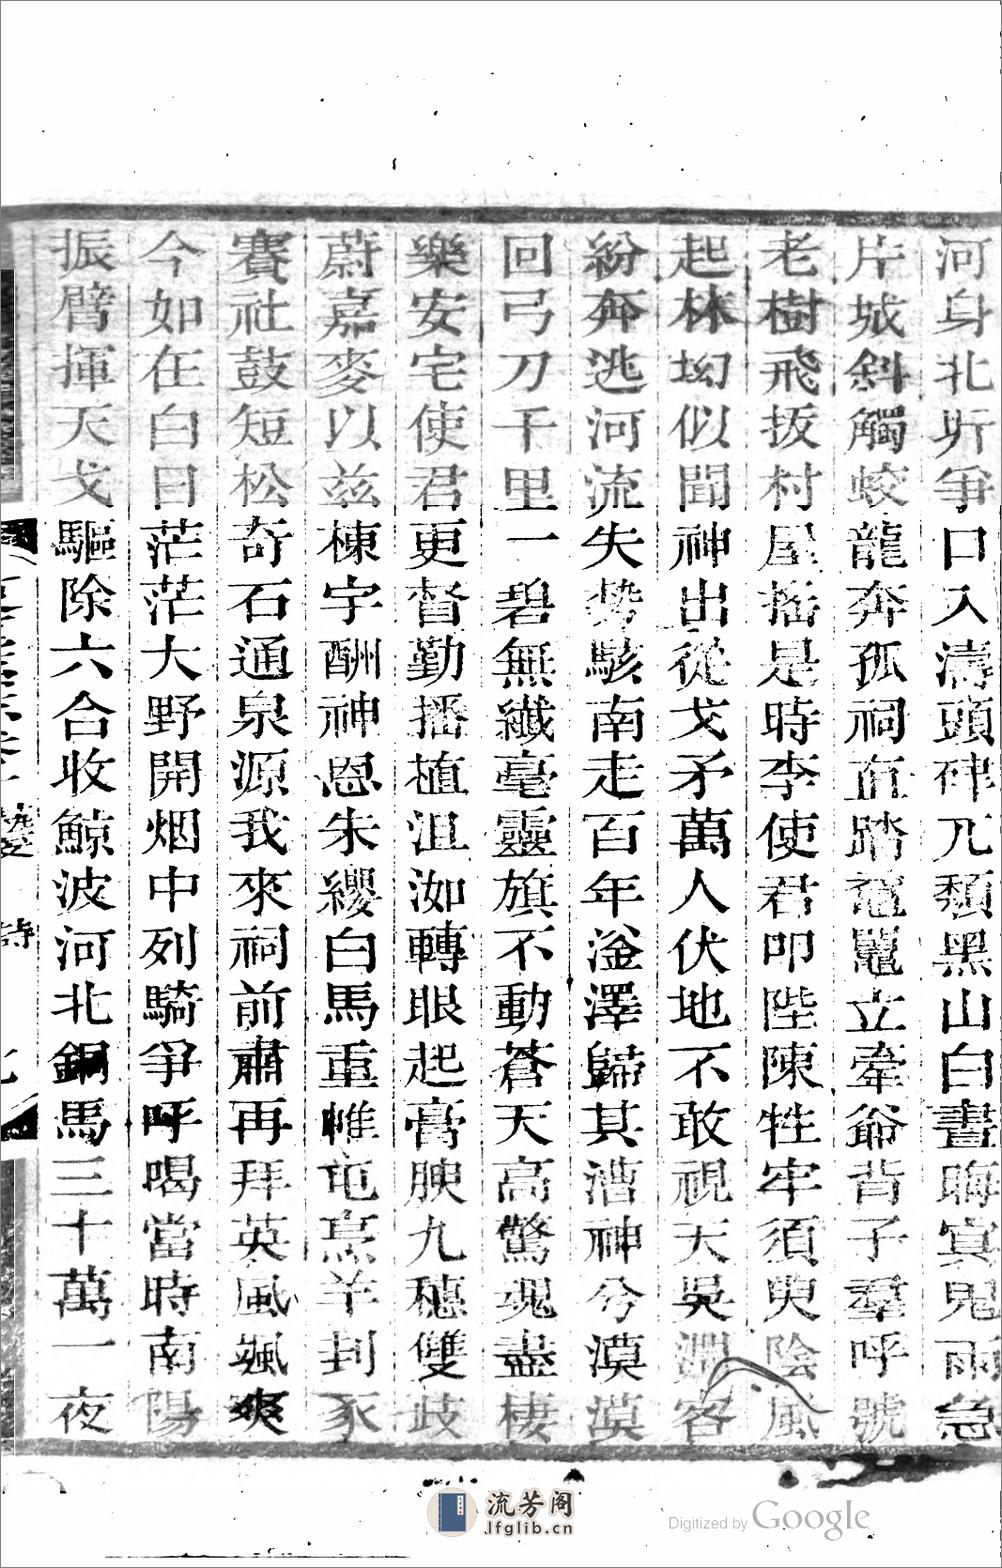 河身北圻爭口入濤頭硉兀頹黑山白晝晦寘鬼雨急
片城斜觸蛟龍奔孤祠直踏黿鼉立牽爺背子羣呼號
老樹飛拔村屋搖是時李使君叩陛陳牲牢須臾陰風
起林坳似聞神出從戈矛萬人伏地不敢視天吳淵客
紛奔逃河流失勢駭南走百年淦澤歸其漕神兮漠漠
回弓刀千里一碧無纖毫靈旗不動蒼天高驚魂盡棲
樂安宅使君更督勤播植沮洳轉眼起膏腴九穗雙歧
蔚嘉麥以兹棟宇酬神恩朱纓白馬重帷屯烹羊刲豕
賽社鼓短松奇石通泉源我來祠前肅再拜英風颯爽
今如在白日茫茫大野開烟中列騎爭呼喝當時南陽
振臂揮天戈驅除六合收鯨波河北銅馬三十萬一夜
詩
流芳阁
lfglib.cn
Digitized by Google